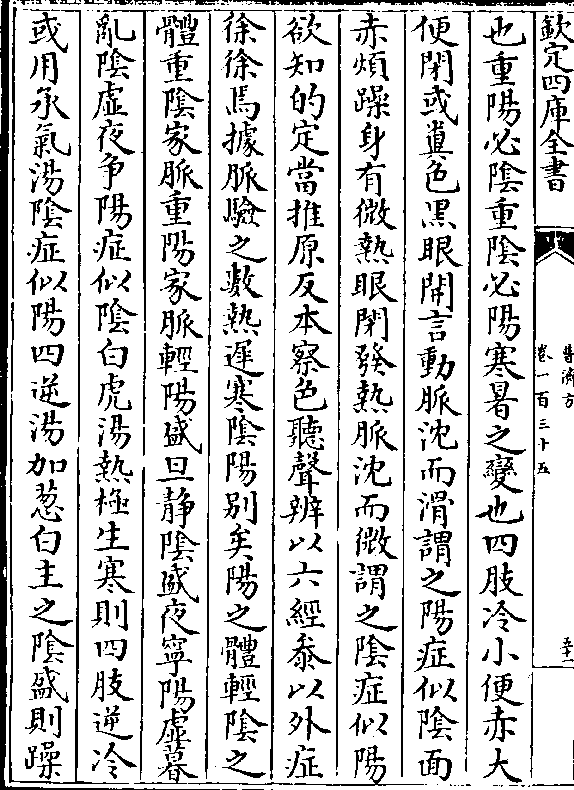 欽定四庫全書
普濟方
卷一百三十五
也重陽必陰重陰必陽寒暑之變也四肢冷小便赤大
便閉或真色黑眼開言動脈沈而滑謂之陽症似陰面
赤煩躁身有微熱眼閉發熱脈沈而微謂之陰症似陽
欲知的定當推原反本察色聽聲辨以六經叅以外症
徐徐焉據脈驗之數熱遲寒陰陽别矣陽之體輕陰之
體重陰家脈重陽家脈輕陽盛旦静陰盛夜寧陽虛暮
亂陰虛夜争陽症似陰白虎湯熱極生寒則四肢逆冷
或用承氣湯陰症似陽四逆湯加葱白主之陰盛則躁